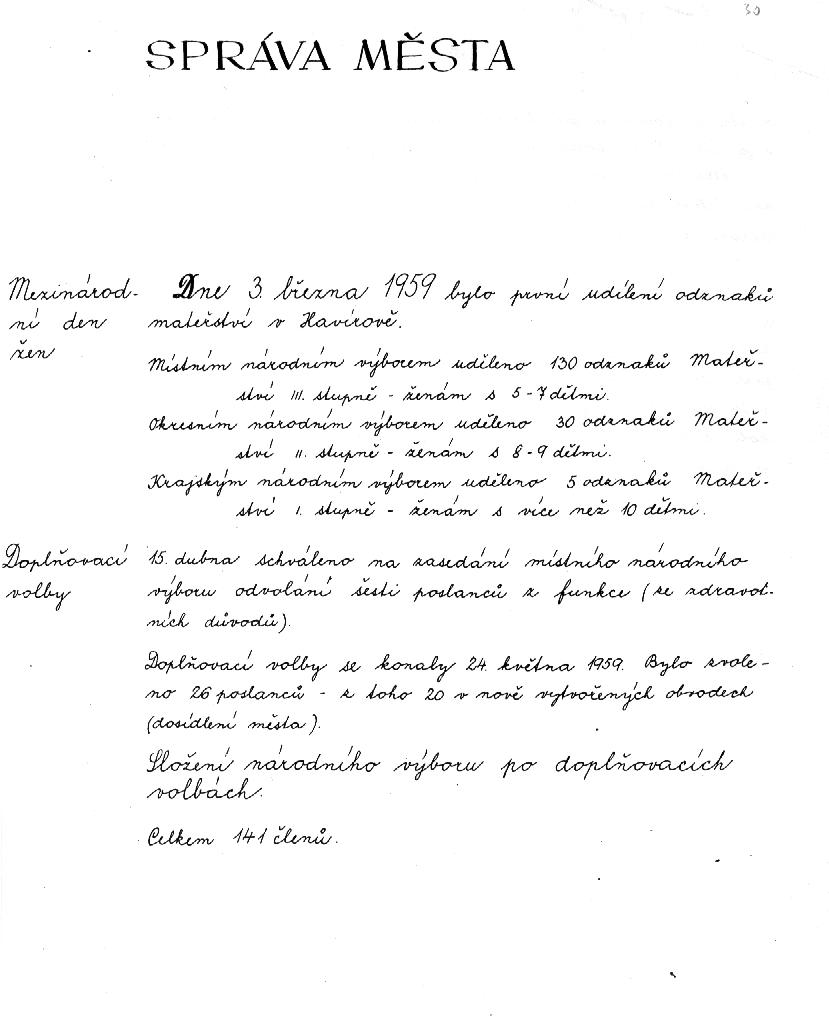 30
SPRÁVA MĚSTA
Mezinárod-
ní den
žen
Dne 3. března 1959 bylo první udílení odznaků
mateřství v Havířově.
Místním národním výborem uděleno 130 odznaků Mateř-
ství III. stupně - ženám s 5-7 dětmi.
Okresním národním výborem uděleno 30 odznaků Mateř-
ství II. stupně - ženám s 8-9 dětmi.
Krajským národním výborem uděleno 5 odznaků Mateř-
ství I. stupně - ženám s více než 10 dětmi.
Doplňovací
volby
15. dubna schváleno na zasedání místního národního
výboru odvolání šesti poslanců z funkce (ze zdravot-
ních důvodů).
Doplňovací volby se konaly 24. května 1959. Bylo zvole-
no 26 poslanců - z toho 20 v nově vytvořených obvodech
(dosídlení města).
Složení národního výboru po doplňovacích
volbách.
Celkem 141 členů.